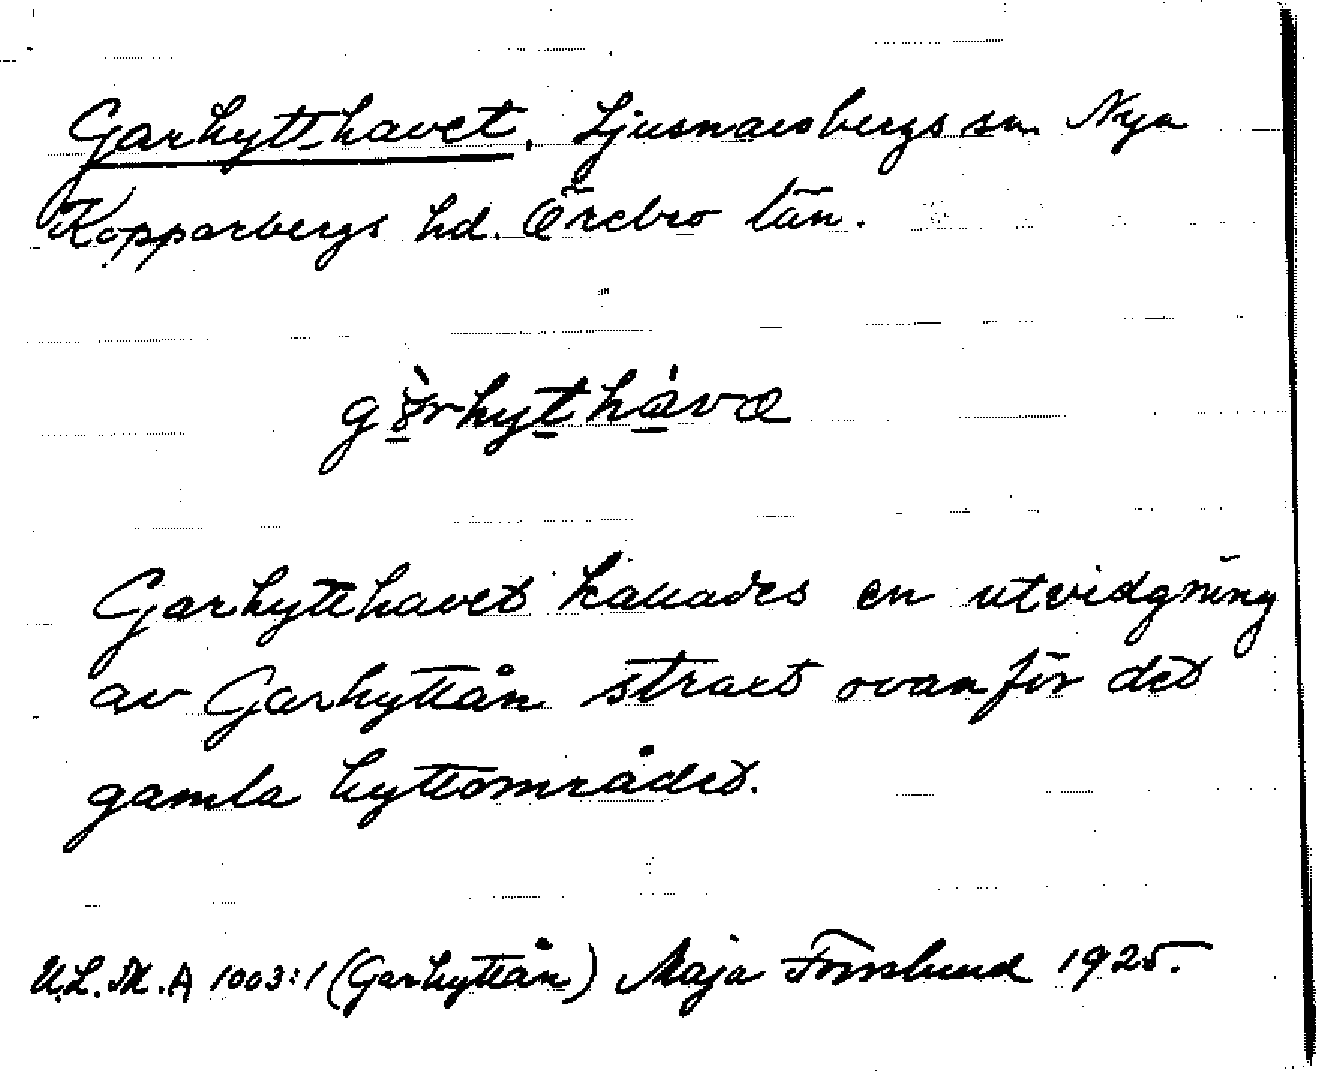 Garhytthavet, Ljusnarsbergs sn. Nya
Kopparbergs hd. Örebro län.
Garhytthavet kallades en utvidgning
av Garhyttån strax ovanför det
gamla hyttområdet.
U.L.M.A 1003:1 (Garhyttån) Maja Forsslund 1925.